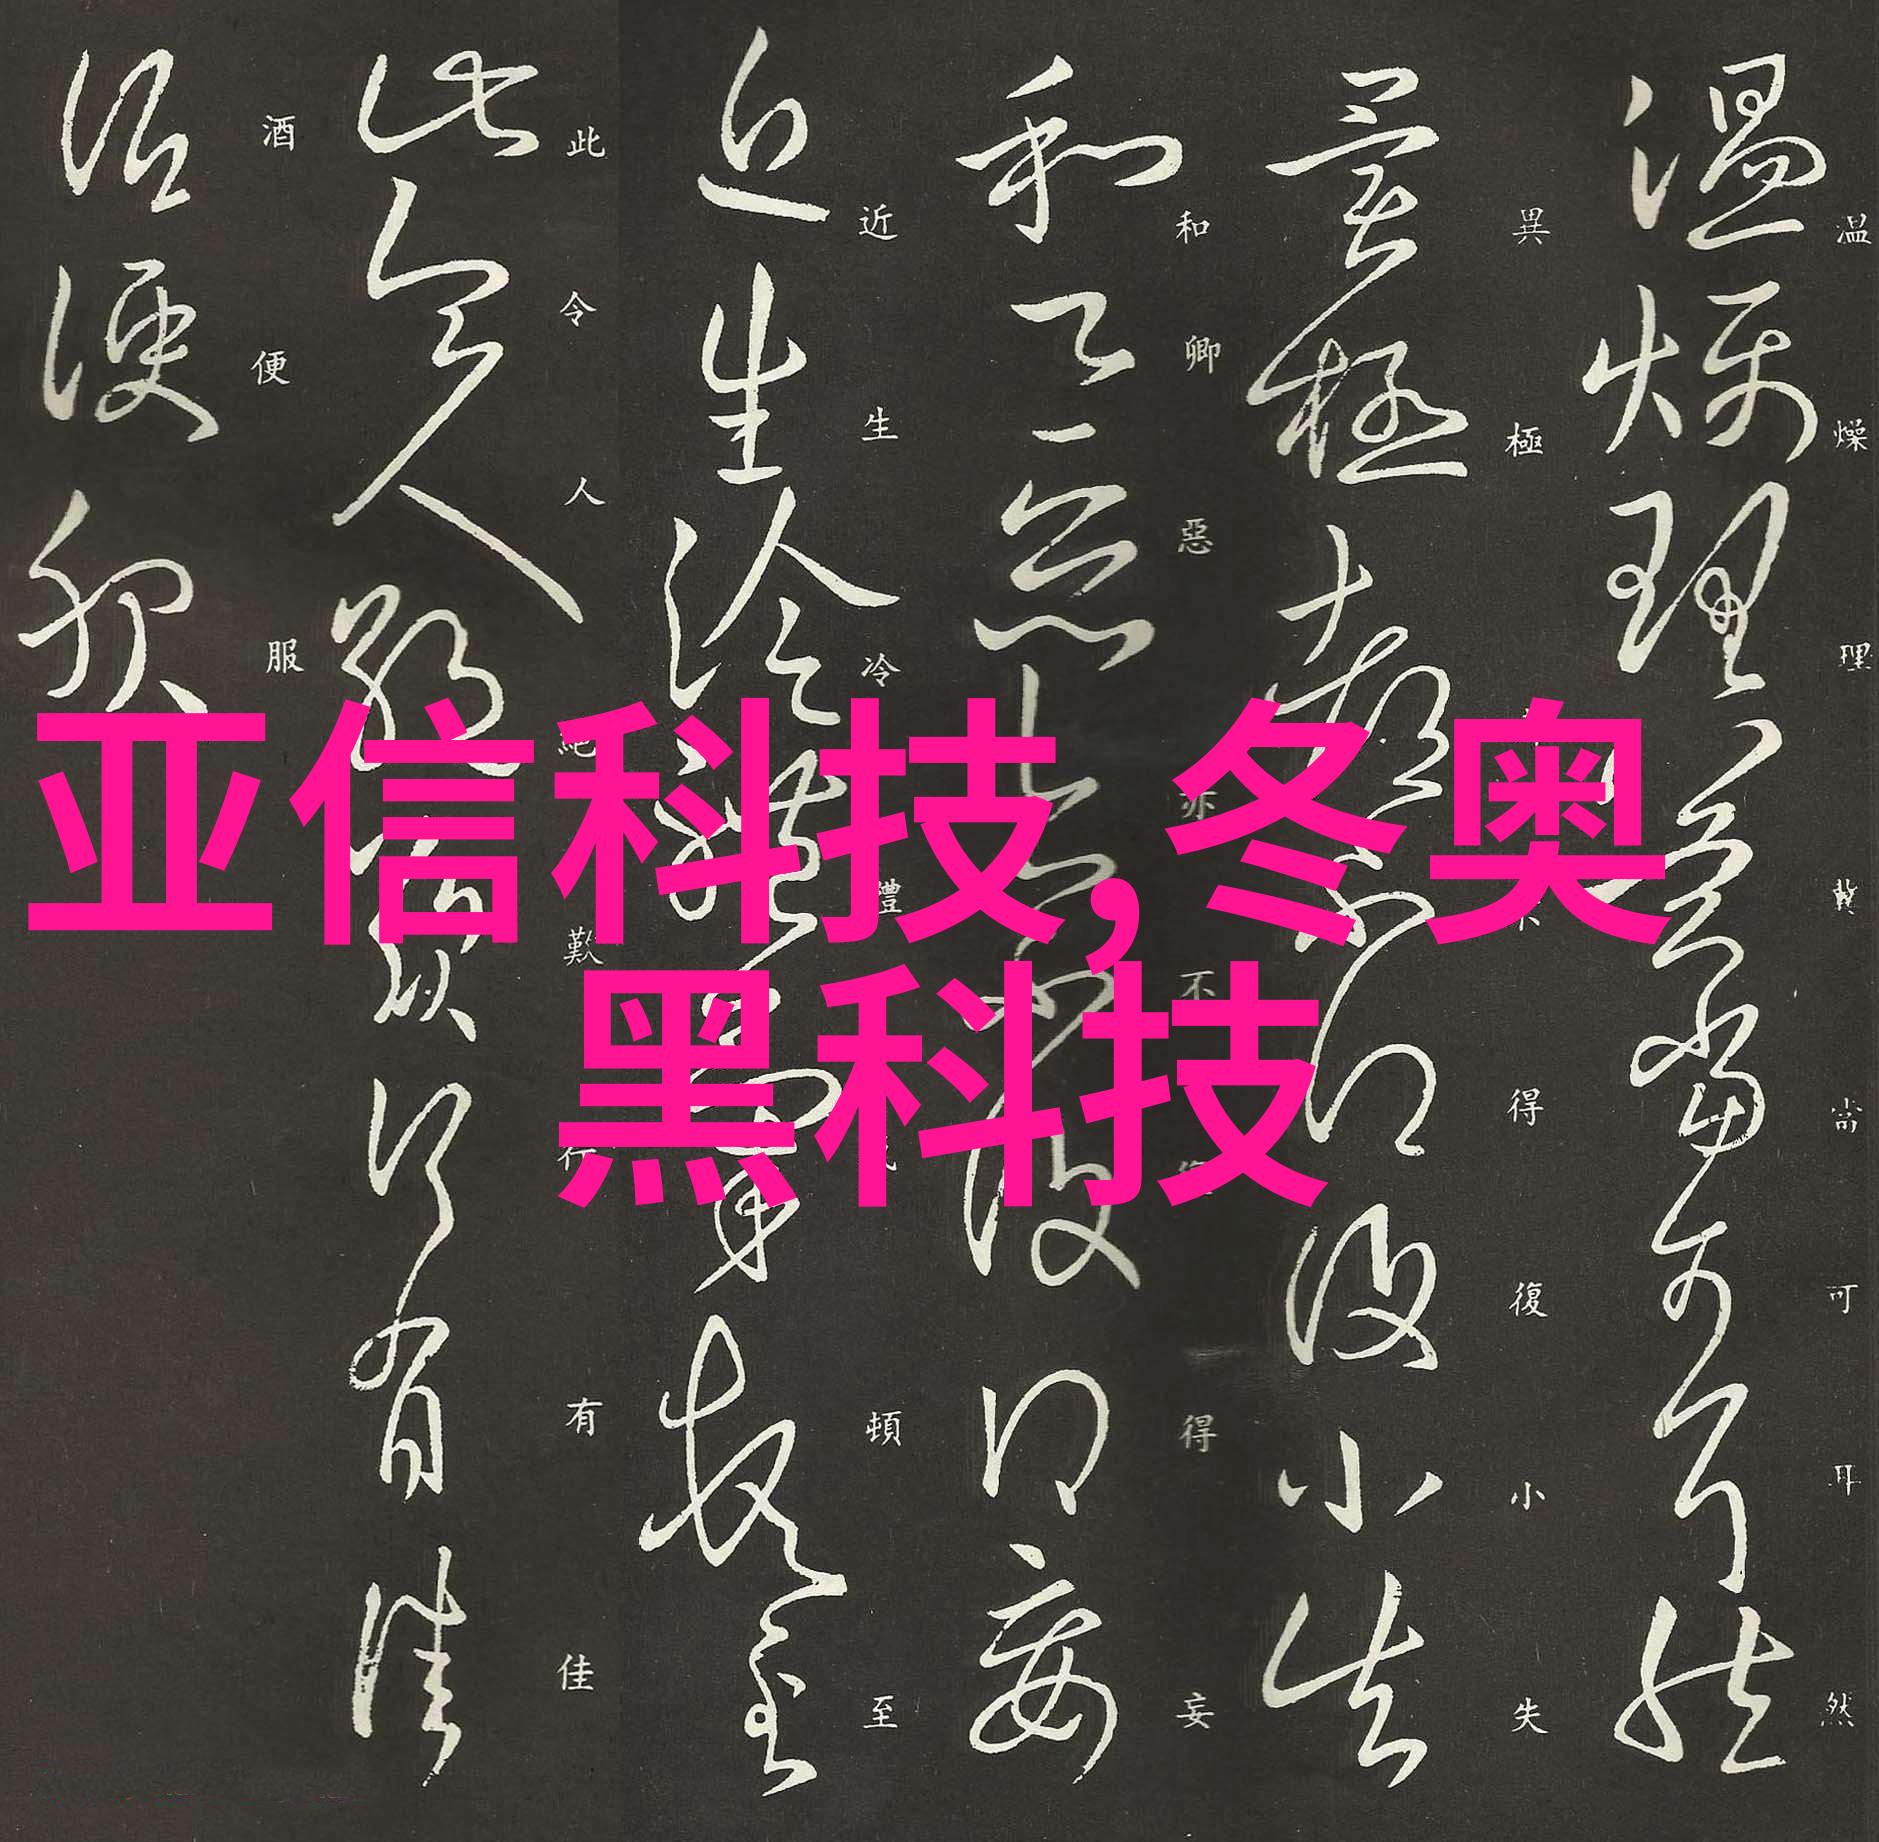 温燥理冀當可耳然
異極不得復小失
和卿惡亦不復得妄
近生冷體氣頓至
此令人絶歎行有佳
酒便服
亚信科技,冬奥
黑科技